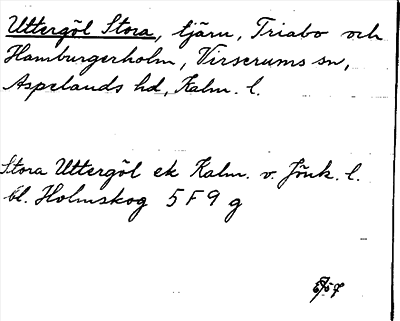 Uttergöl Stora, tjärn, Triabo och
Hamburgerholm, Virserums sn,
Aspelands hd, Kalm. l.
Stora Uttergöl ek Kalm. v. Jönk. l.
bl. Holmskog 5 F 9 g